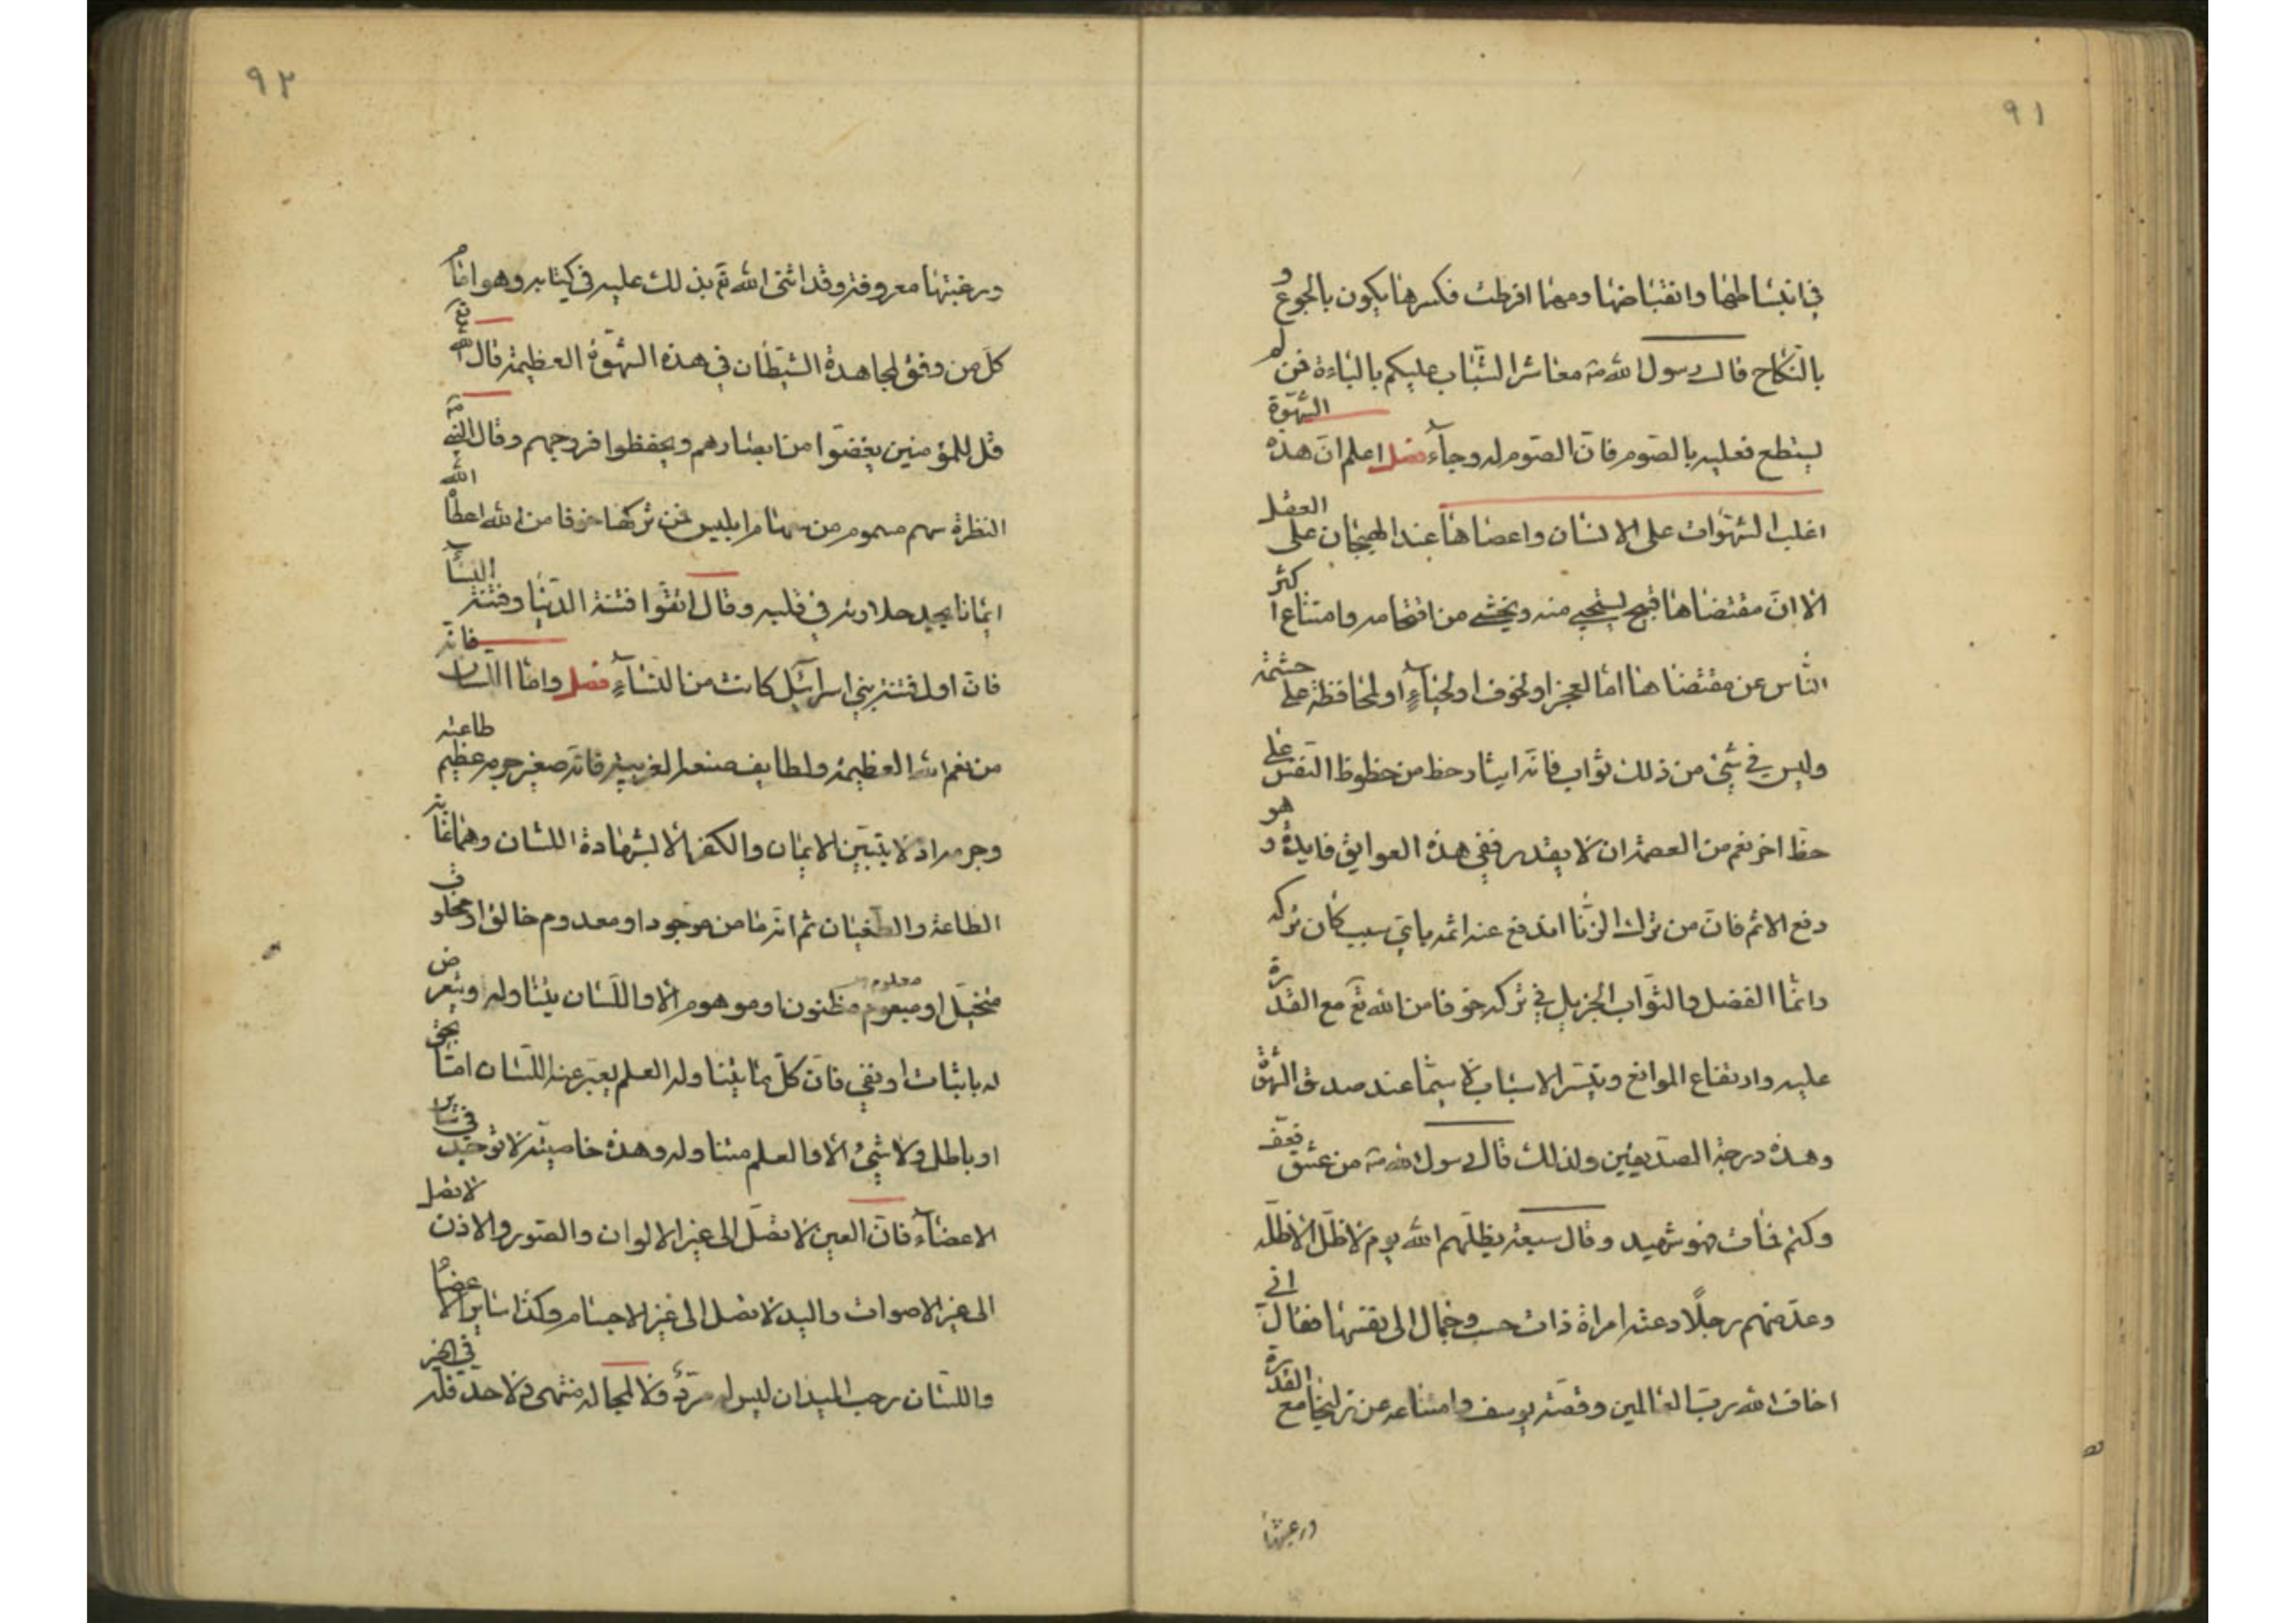 ٩١
في انبساطها وانقباضها ومهما افرطت فكسرها يكون بالجوع و
بالنكاح قال رسول الله ص معاشر الشباب عليكم بالباءة فمن لم
يستطع فعليه بالصوم فان الصوم له وجاء فصل اعلم ان هذه الشهوة
اغلب الشهوات على الانسان واعصاها عند الهيجان على العقل
الا ان مقتضاها قبيح يستحيى منه ويخشى من اقتحامه وامتناع اكثر
الناس عن مقتضاها اما لعجز او لخوف او لحياء او لمحافظة على حشمة
وليس في شئ من ذلك ثواب فانه ايثار حظ من حظوظ النفس على
حظ اخر نعم من العصمة ان لا يقدر ففي هذه العوايق فايدة و هو
دفع الاثم فان من ترك الزنا اندفع عنه اثمه باي سبب كان تركه
وانما الفضل والثواب الجزيل في تركه خوفا من الله تع مع القدرة
عليه وارتفاع الموانع وتيسر الاسباب لا سيما عند صدق الشهوة
وهذه درجة الصديقين ولذلك قال رسول الله ص من عشق فعف
وكتم فمات فهو شهيد وقال سبعة يظلهم الله يوم لا ظل الا ظله
وعد منهم رجلا دعته امراة ذات حسب وجمال الى نفسها فقال اني
اخاف الله رب العالمين وقصة يوسف وامتناعه عن زليخا مع القدرة
ورغبتها
٩٢
ورغبتها معروفة وقد اثنى الله تع بذلك عليه في كتابه وهو امام
كل من وفق لمجاهدة الشيطان في هذه الشهوة العظيمة قال الله تع
قل للمؤمنين يغضوا من ابصارهم ويحفظوا فروجهم وقال النبي ص
النظرة سهم مسموم من سهام ابليس فمن تركها خوفا من الله اعطاه الله
ايمانا يجد حلاوته في قلبه وقال اتقوا فتنة الدنيا وفتنة النساء
فان اول فتنة بني اسرائيل كانت من النساء فصل واما اللسان فانه
من نعم الله العظيمة ولطايف صنعه الغريبة فانه صغير جرمه عظيم طاعته
وجرمه اذ لا يتبين الايمان والكفر الا بشهادة اللسان وهما غاية
الطاعة والطغيان ثم انه ما من موجود او معدوم خالق او مخلوق
متخيل او معلوم معلوم مظنون او موهوم الا واللسان يتناوله ويتعرض
له باثبات او نفي فان كل ما يتناوله العلم يعبر عنه اللسان اما بحق
او باطل ولا شئ الا والعلم متناوله وهذه خاصية لا توجد في ساير
الاعضاء فان العين لا تصل الى غير الالوان والصور والاذن لا تصل
الى غير الاصوات واليد لا تصل الى غير الاجسام وكذا ساير الاعضاء
واللسان رحب الميدان ليس له مرد ولا لمجاله منتهى ولا حد فله في الخير